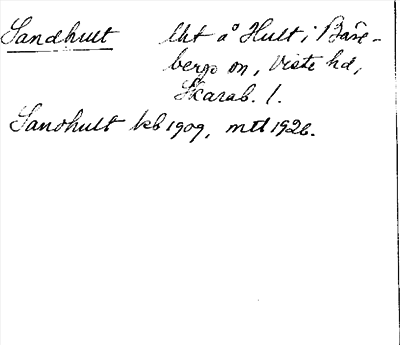 Sandhult lht å Hult i Båre-
bergs sn, Viste hd,
Skarab. l.
Sandhult kb 1909, mtl 1926.